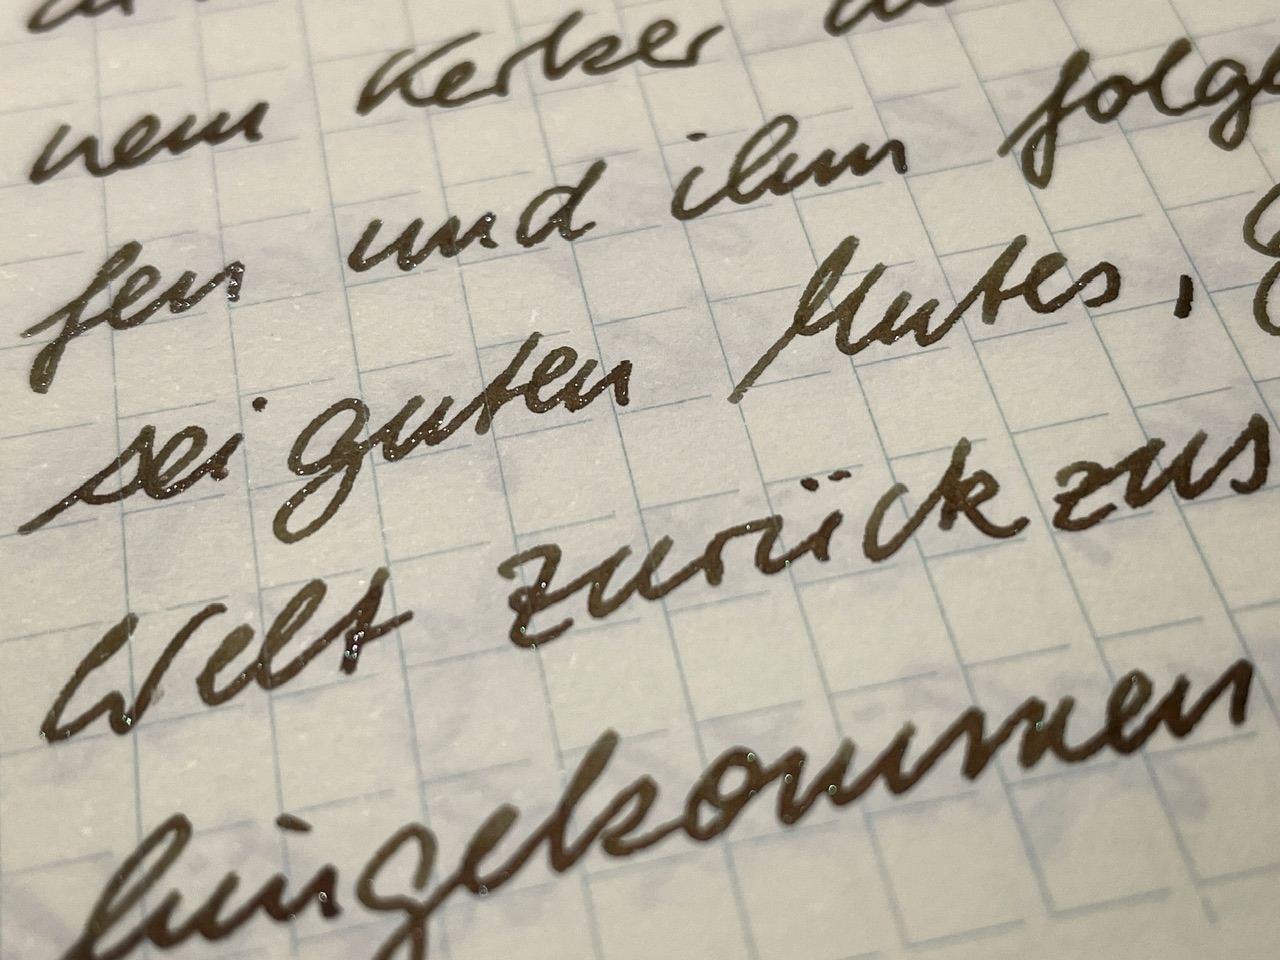 nem Kerker
fen und ihm folge
sei guten Mutes,
Welt zurück zus
hingekommen